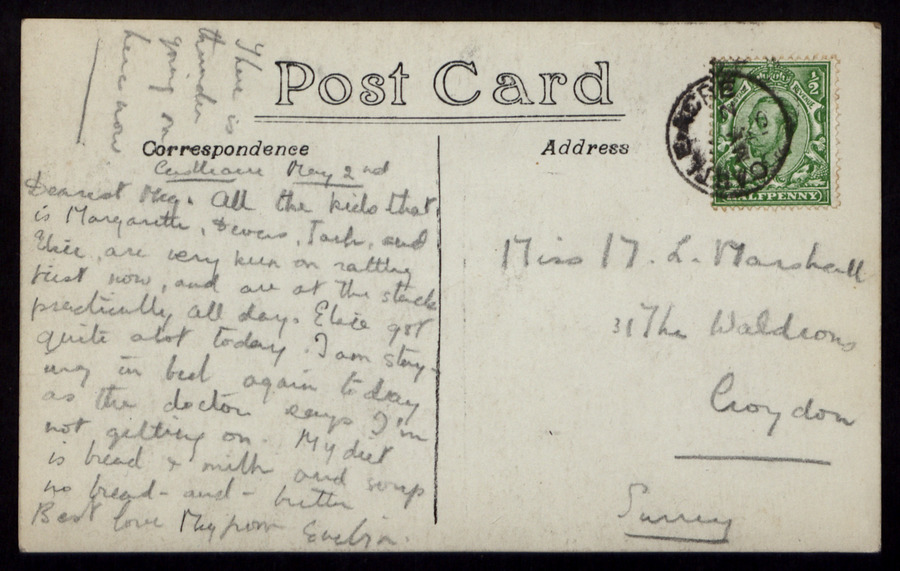 There is
thunder
going on
here now
Post Card
Correspondence
Address
May 2nd
Dearest Meg. All the kids that
is Margarette, Tach, and
Elsie, are very keen on ratting
just now, and are at the stack
practically all day. Elsie got
quite alot today. I am stay-
ing in bed again today
as the doctor says I'm
not getting on. My diet
is bread & milk and soup
no bread-and-butter
Best love Meg from Evelyn.
Miss M. L. Marshall
31 The Waldrons
Croydon
Surrey
CASTLE ACRE
½
HALFPENNY